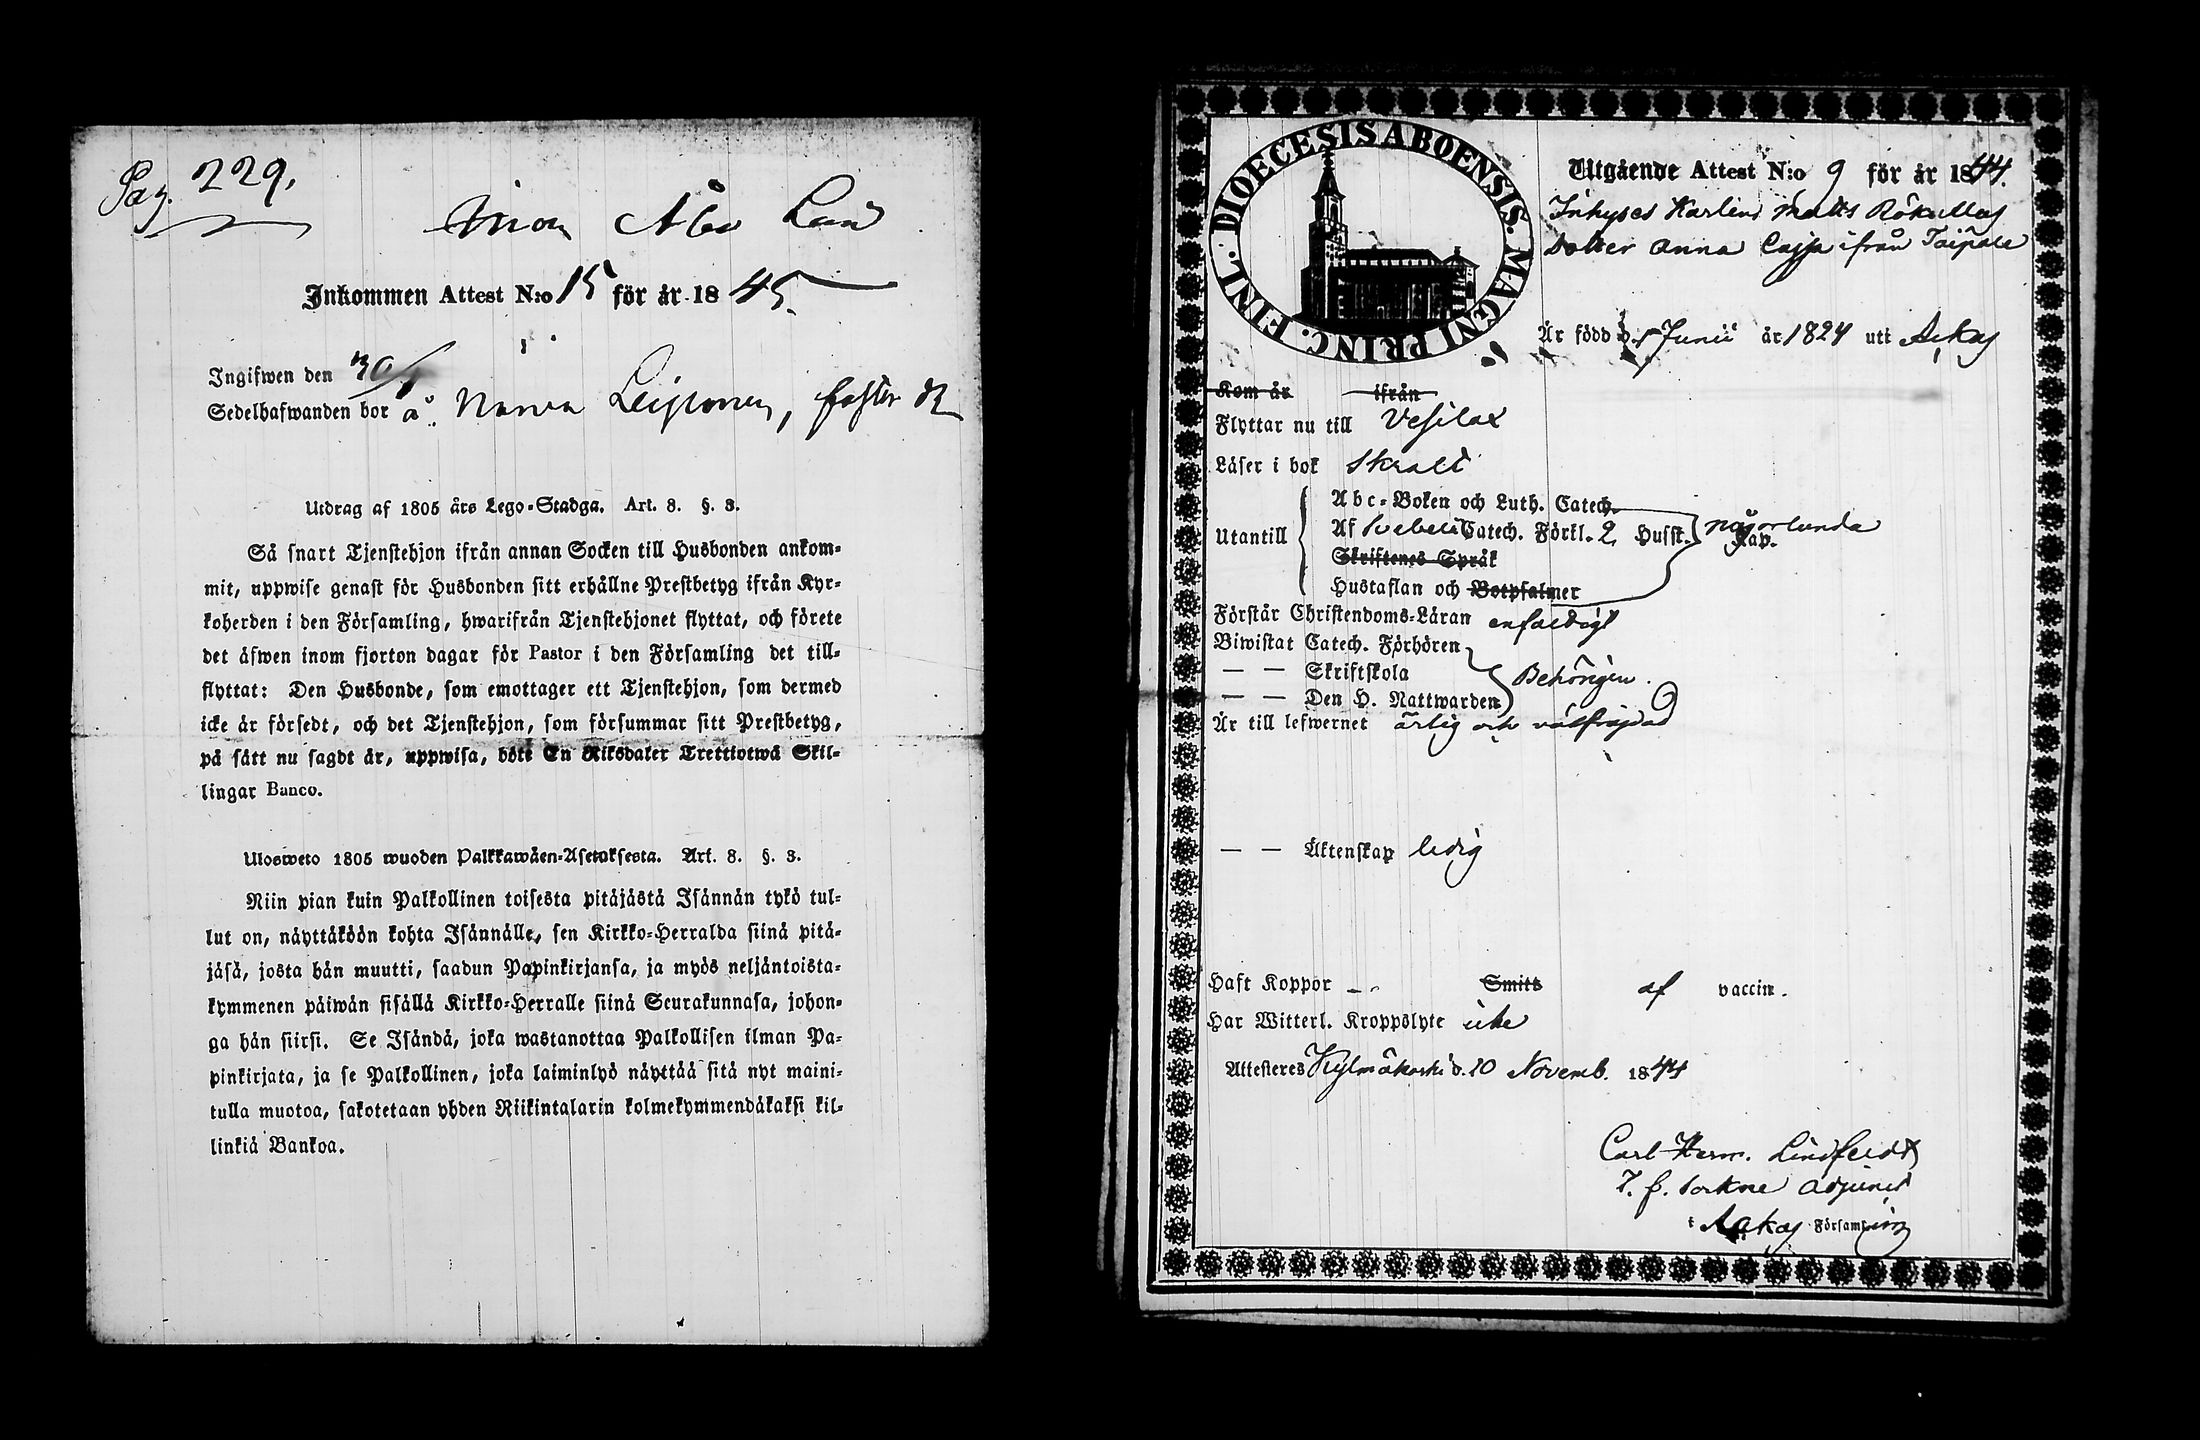 Pag. 229.
Inom Åbo Län
Inkommen Attest N:o 15 för år 1845.
Ingifwen den 30/1
Sedelhafwanden bor å Narva
Utdrag af 1805 års Lego-Stadga. Art. 8. §. 3.
Så snart Tjenstehjon ifrån annan Socken till Husbonden ankom-
mit, uppwise genast för Husbonden sitt erhållne Prestbetyg ifrån Kyr-
koherden i den Församling, hwarifrån Tjenstehjonet flyttat, och förete
det äfwen inom fjorton dagar för Pastor i den Församling det till-
flyttat: Den Husbonde, som emottager ett Tjenstehjon, som dermed
icke är försedt, och det Tjenstehjon, som försummar sitt Prestbetyg,
på sätt nu sagdt är, uppwisa, böte En Riksdaler Trettiotwå Skil-
lingar Banco.
Ulosweto 1805 wuoden Palkkawäen-Asetuksesta. Art. 8. §. 3.
Niin pian kuin Palkollinen toisesta pitäjästä Isännän tykö tul-
lut on, näyttäköön kohta Isännälle, sen Kirkko-Herralda siinä pitä-
jäsä, josta hän muutti, saadun Papinkirjansa, ja myös neljäntoista-
kymmenen päiwän sisällä Kirkko-Herralle siinä Seurakunnasa, johon-
ga hän siirsi. Se Isändä, joka wastanottaa Palkollisen ilman Pa-
pinkirjata, ja se Palkollinen, joka laiminlyö näyttää sitä nyt maini-
tulla muotoa, sakotetaan yhden Riikintalarin kolmekymmendäkaksi kil-
linkiä Bankoa.
DIOECESIS ABOENSIS. MAGNI PRINC. FINL.
Utgående Attest N:o 9 för år 1844.
Inhyses Karlens Matts Rökullas
Dotter Anna Cajsa ifrån Taipale
Är född d. Junii år 1824 utt Ackas
Kom år ifrån
Flyttar nu till Vesilax
Läser i bok Skralt
Utantill
Abc-Boken och Luth. Catech.
Af Svebelii Catech. Förkl. 2 Hufst. Kap. någorlunda
Skriftenes Språk
Hustaflan och Botpsalmer
Förstår Christendoms-Läran enfaldigt
Biwistat Catech. Förhören
— — Skriftskola Behörigen.
— — Den H. Nattwarden
Är till lefwernet ärlig och välfräjdad
— — Äktenskap ledig
Haft Koppor Smitt af vaccin.
Har Witterl. Kroppslyte icke
Attesteres Kylmäkoski d. 10 Novemb. 1844
Carl Herm. Lindfeldt
T. f. Sockne Adjunct
i Ackas Församling